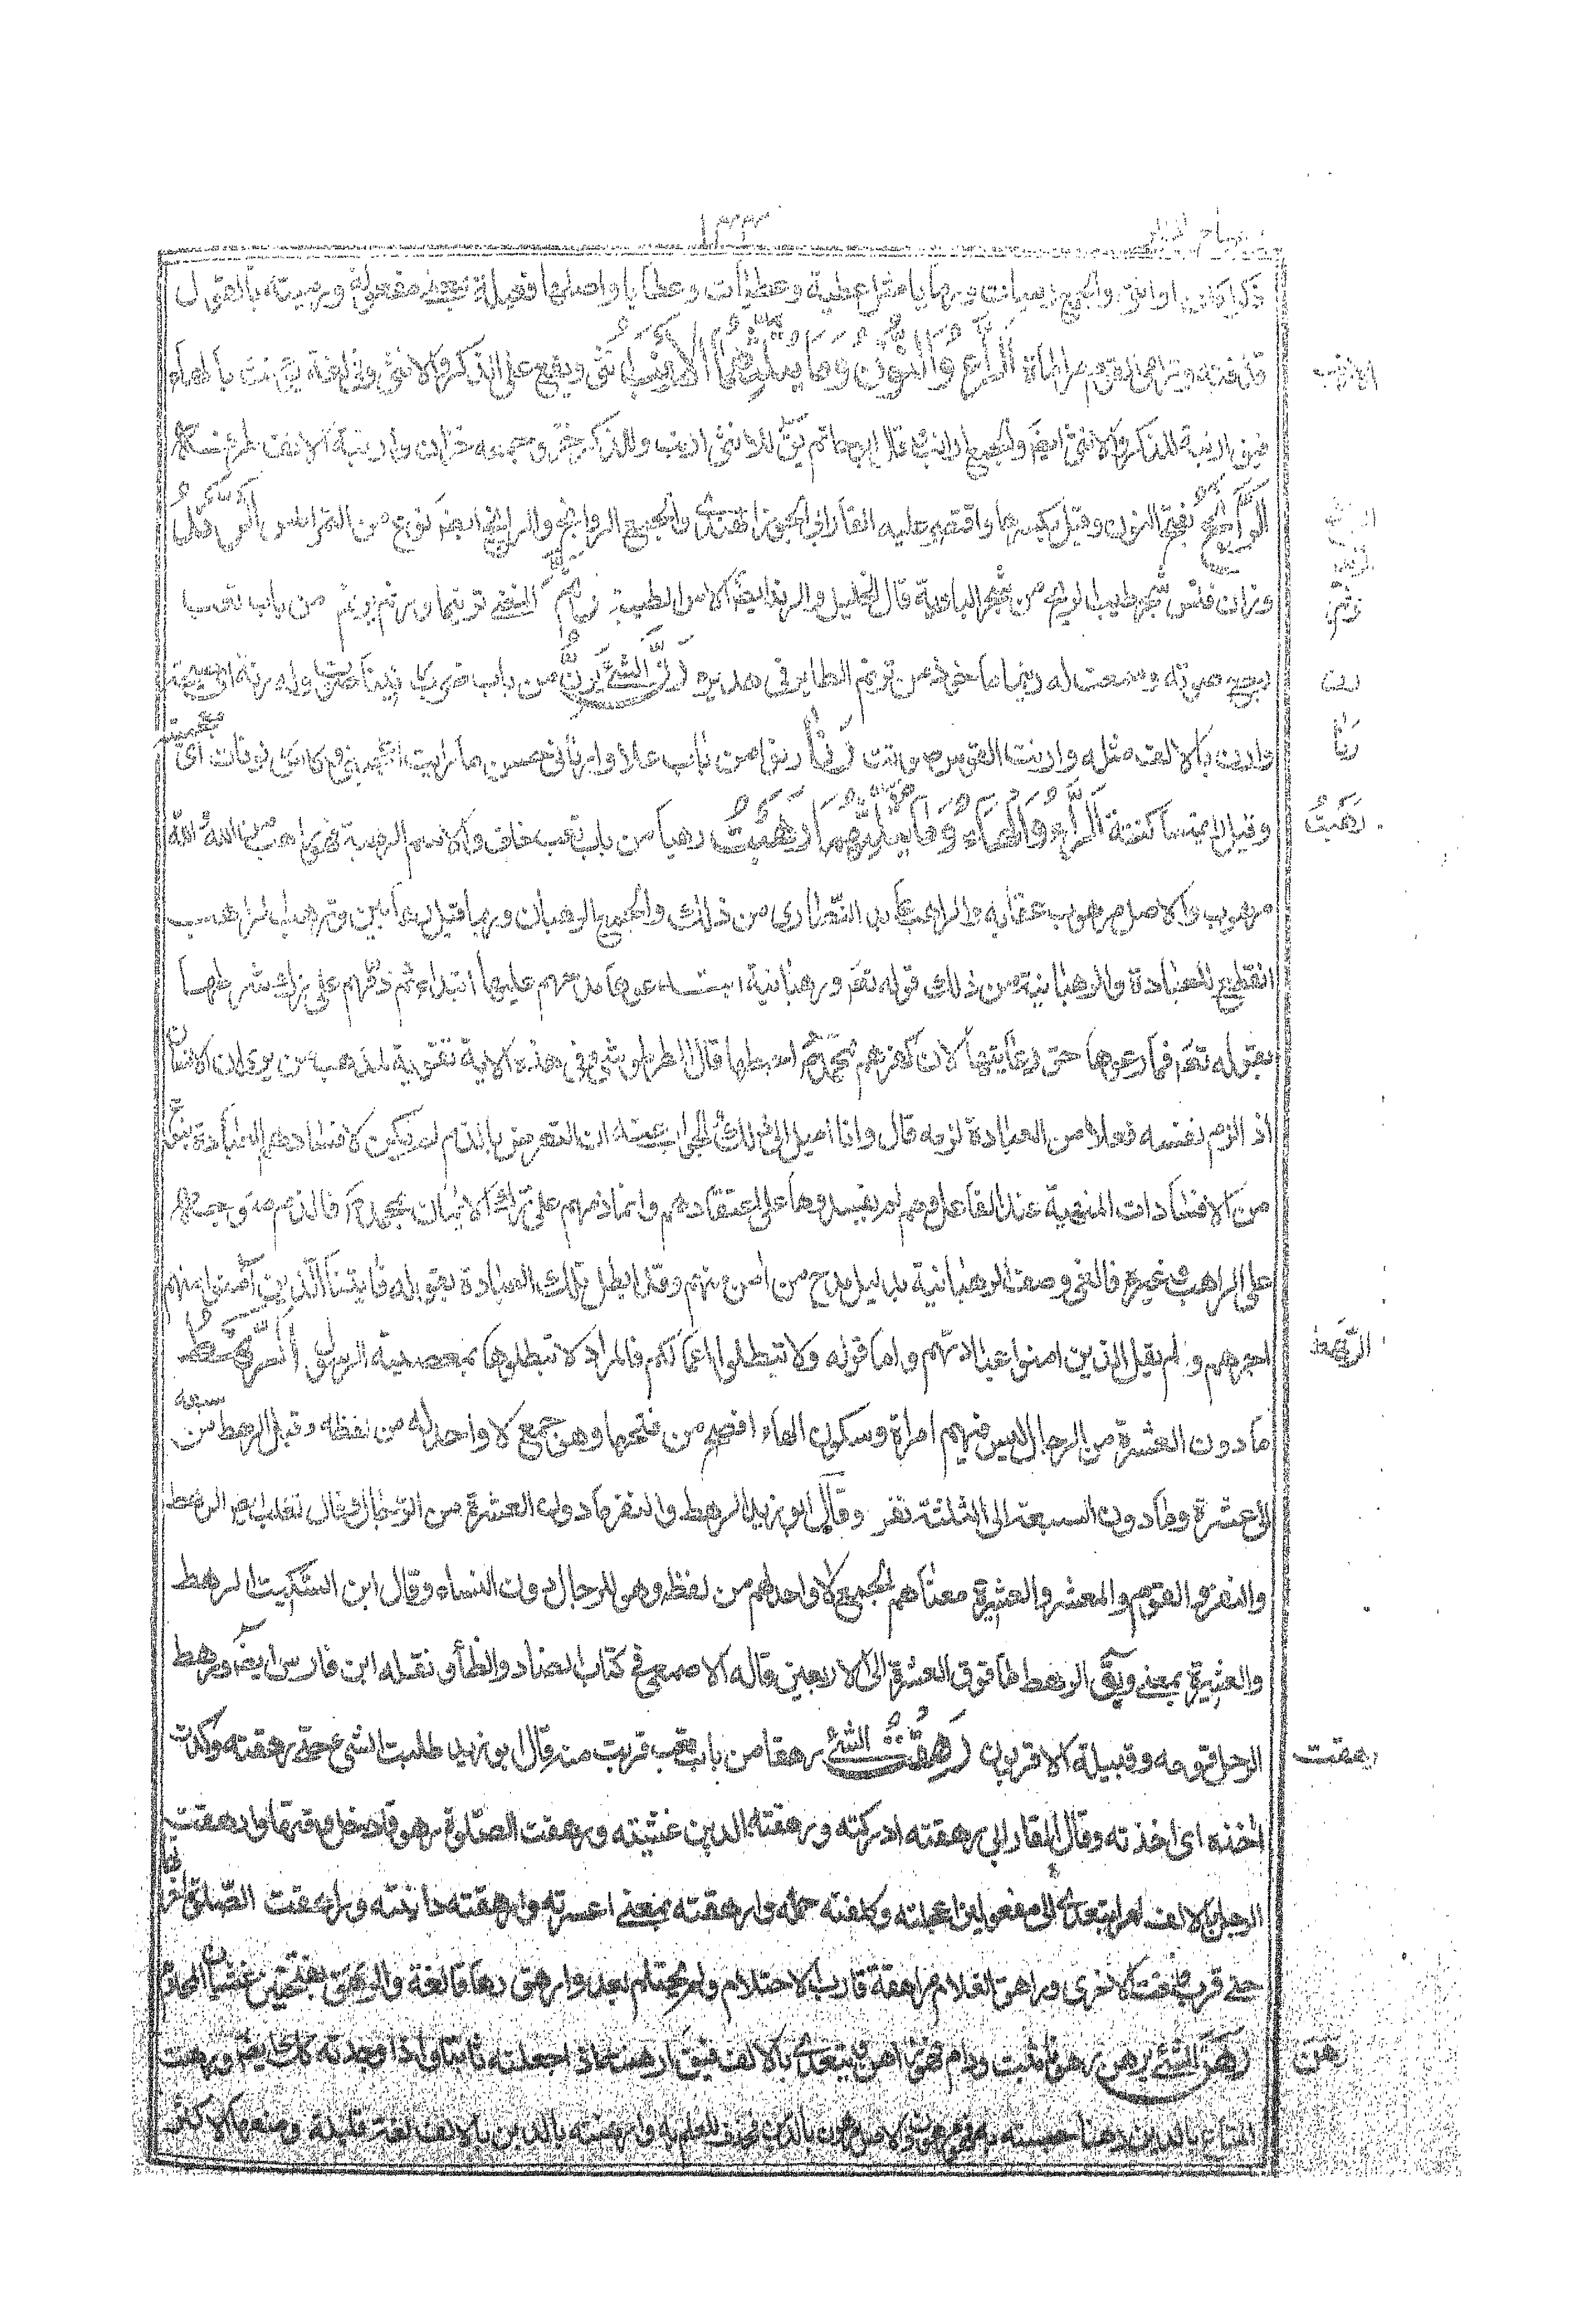 ١٣٣
ذكرا كان او انثى والجمع رميات ورمايا مثل عطية وعطيات وعطايا واصلها فعيلة بمعنى مفعولة ورميته بالقول
قذفته وترامى القوم مراماة اَلرَّاءُ وَالنُّوْنُ وَمَا يُثَلِّثُهُمَا الاَرْنَبُ انثى ويقع على الذكر والانثى وفي لغة يؤنث بالهاء
الارنب
فيق ارنبة للذكر والانثى ايضَ والجمع ارانب قال ابو حاتم يَقَ للانثى ارنب وللذكر خزز وجمعه خزان وارنبة الانف طرفه
اَلرَّانِجُ بفتح النون وقيل بكسرها واقتصر عليه الفارابي الجوز الهندي والجمع الروانج والرانج ايضَ نوع من التمر املس اَلرَّنْدُ
الرانج
الرند
وزان فلس شجر طيب الريح من شجر البادية قال الخليل والرند ايضَ الآس لطيبه رَنَّمَ المغني ترنيما ورنم يرنم من باب تعب
رنم
رجع صوته وسمعت له رنيما ماخوذ من ترنم الطاير في هديره رَنَّ الشئ يَرِنُّ من باب ضرب رنينا صوّت وله رنة اي صيحة
رن
وارن بالالف مثله وارنت القوس صوتت رَنَا رنوا من باب علا وارناني حسن ما رايت اعجبني وكاس رنوناة اي معجبة
رَنَا
وقيل دايمة ساكنة اَلرَّاءُ وَالْهَاءُ وَمَا يُثَلِّثُهُمَا رَهِبْتُ رهبا من باب تعب خاف والاسم الرهبة فهو راهب من الله والله
رَهِبْتُ
مرهوب والاصل مرهوب عقابه والراهب عابد النصارى من ذلك والجمع الرهبان وربما قيل رهابين وترهب الراهب
انقطع للعبادة والرهبانية من ذلك قوله تعَ ورهبانية ابتدعوها مدحهم عليها ابتداء ثم ذمهم على ترك شرطها
بقوله تعَ فما رعوها حق رعايتها لان كفرهم بمحمدٍ احبطها قال الطرطوشي وفي هذه الاية تقوية لمذهب من يرى ان الانسان
اذ الزم نفسه فعلا من العبادة لزمه قال وانا اميل الى ذلك والجواب عنه ان التعرض بالذم لم يكن لافسادهم العبادة بنوع
من الافسادات المنهية عند الفاعل وهم لم يفسدوها على اعتقادهم وانما ذمهم على ترك الايمان بمحمد فالذم متوجه
على الراهب وغيره فالغى وصف الرهبانية بدليل مدح من امن منهم وقد ابطل تلك العبادة بقوله فاتينا الذين آمنوا منهم
اجرهم ولم يقل الذين امنوا عبادتهم واما قوله ولا تبطلوا اعمالكم فالمراد لا تبطلوها بمعصية الرسول اَلرَّهْطُ
الرَّهط
ما دون العشرة من الرجال ليس فيهم امراة وسكون الهاء افصح من فتحها وهو جمع لا واحد له من لفظه وقيل الرهط من سبعة
الى عشرة وما دون السبعة الى الثلثة نفر وقال ابو زيد الرهط والنفر ما دون العشرة من الرجال وقال ثعلب ايضَ الرهط
والنفر والقوم والمعشر والعشيرة معناهم الجمع لا واحد لهم من لفظه وهو للرجال دون النساء وقال ابن السكيت الرهط
والعشيرة بمعنى ويَقَ الرهط ما فوق العشرة الى الاربعين قاله الاصمعي في كتاب الضاد والظاء ونقله ابن فارس ايضَ ورهط
الرجل قومه وقبيلة الاقربون رَهِقْتُ الشئ رهقا من باب تعب قربت منه قال ابو زيد طلبت الشئ حتى رهقته وكدت
رهقت
اخذه اي اخذته وقال الفارابي رهقته ادركته ورهقه الدين غشيته ورهقت الصلوة رهوقا دخل وقتها وارهقت
الرجل بالالف امرا يتعدى الى مفعولين اعجلته وكلفته حمله وارهقته بمعنى اعسرته وارهقته دانيته وارهقت الصلوة اخرتها
حتى قرب وقت الاخرى وراهق الغلام مراهقة قارب الاحتلام ولم يحتلم بعد وارهق رهاقا لغة والرهق بفتحتين غشيان المحارم
رَهَنَ الشئ يرهن رهونا ثبت ودام فهو راهن ويتعدى بالالف فيقَ ارهنته اذا جعلته ثابتا واذا وجدته كذلك ايضَ ورهنت
رهن
المتاع بالدين رهنا حبسته به فهو مرهون والاصل مرهون بالدين فحذف للعلم به وارهنته بالدين بالالف لغة قليلة ومنعها الاكثر